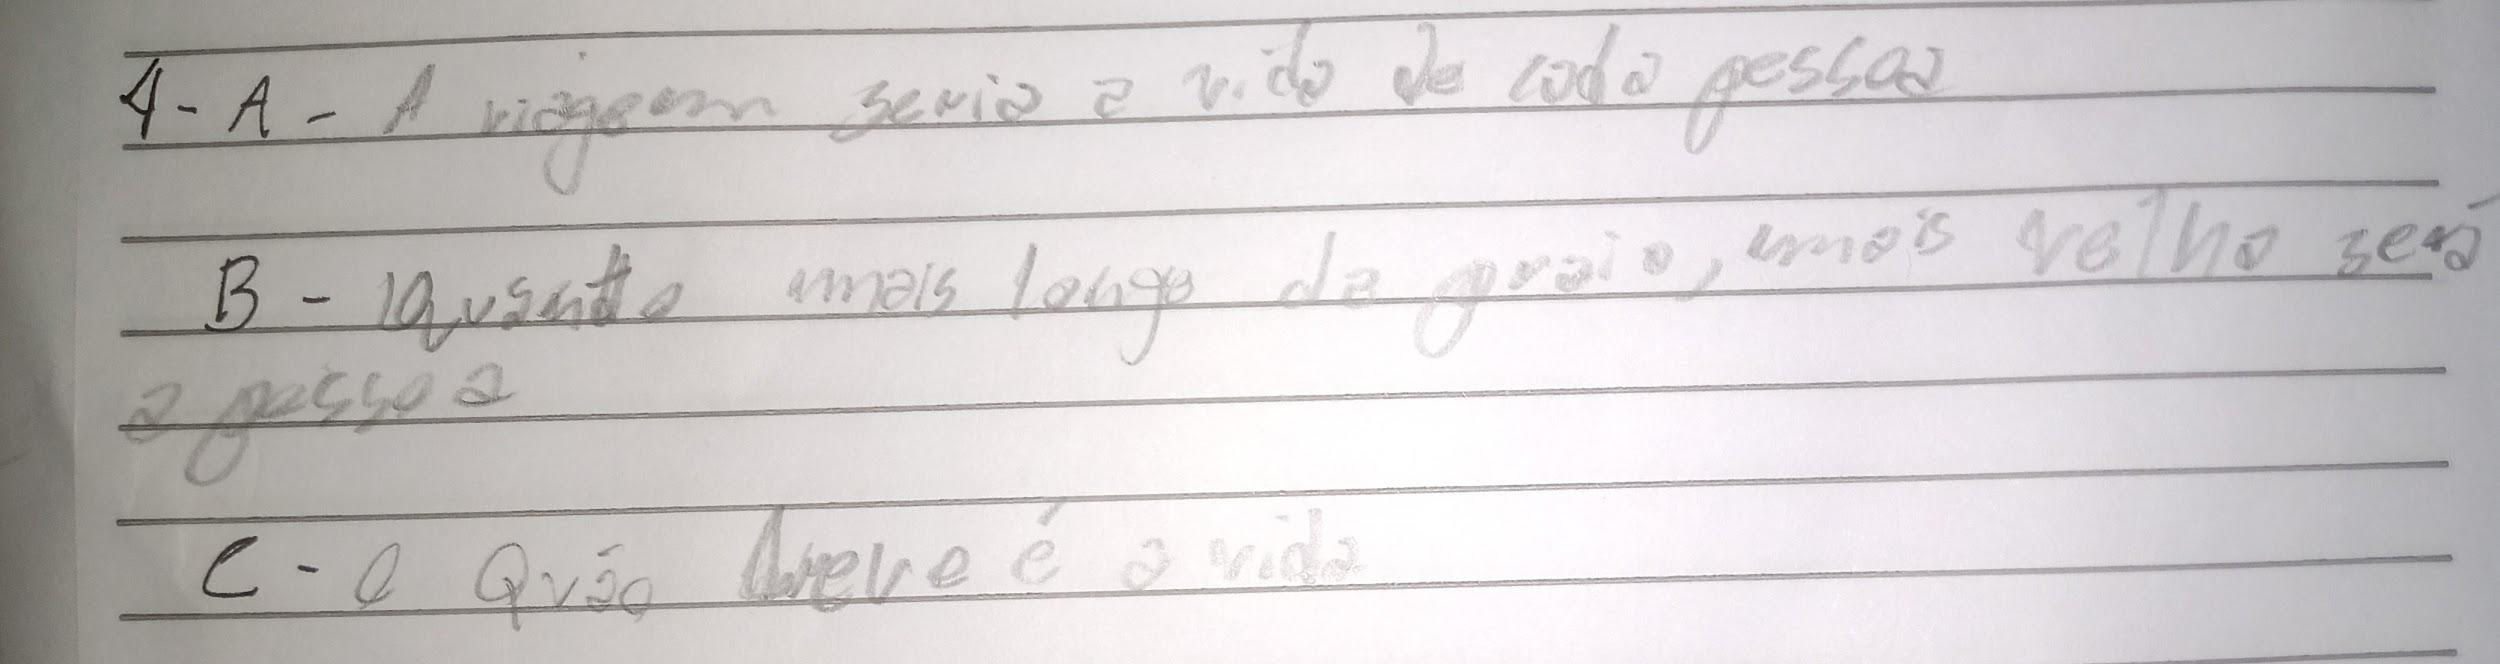 4 - A - A viagem seria a vida de cada pessoa
B - Quanto mais longe da praia, mais velho será
a pessoa
C - O Quão breve é a vida